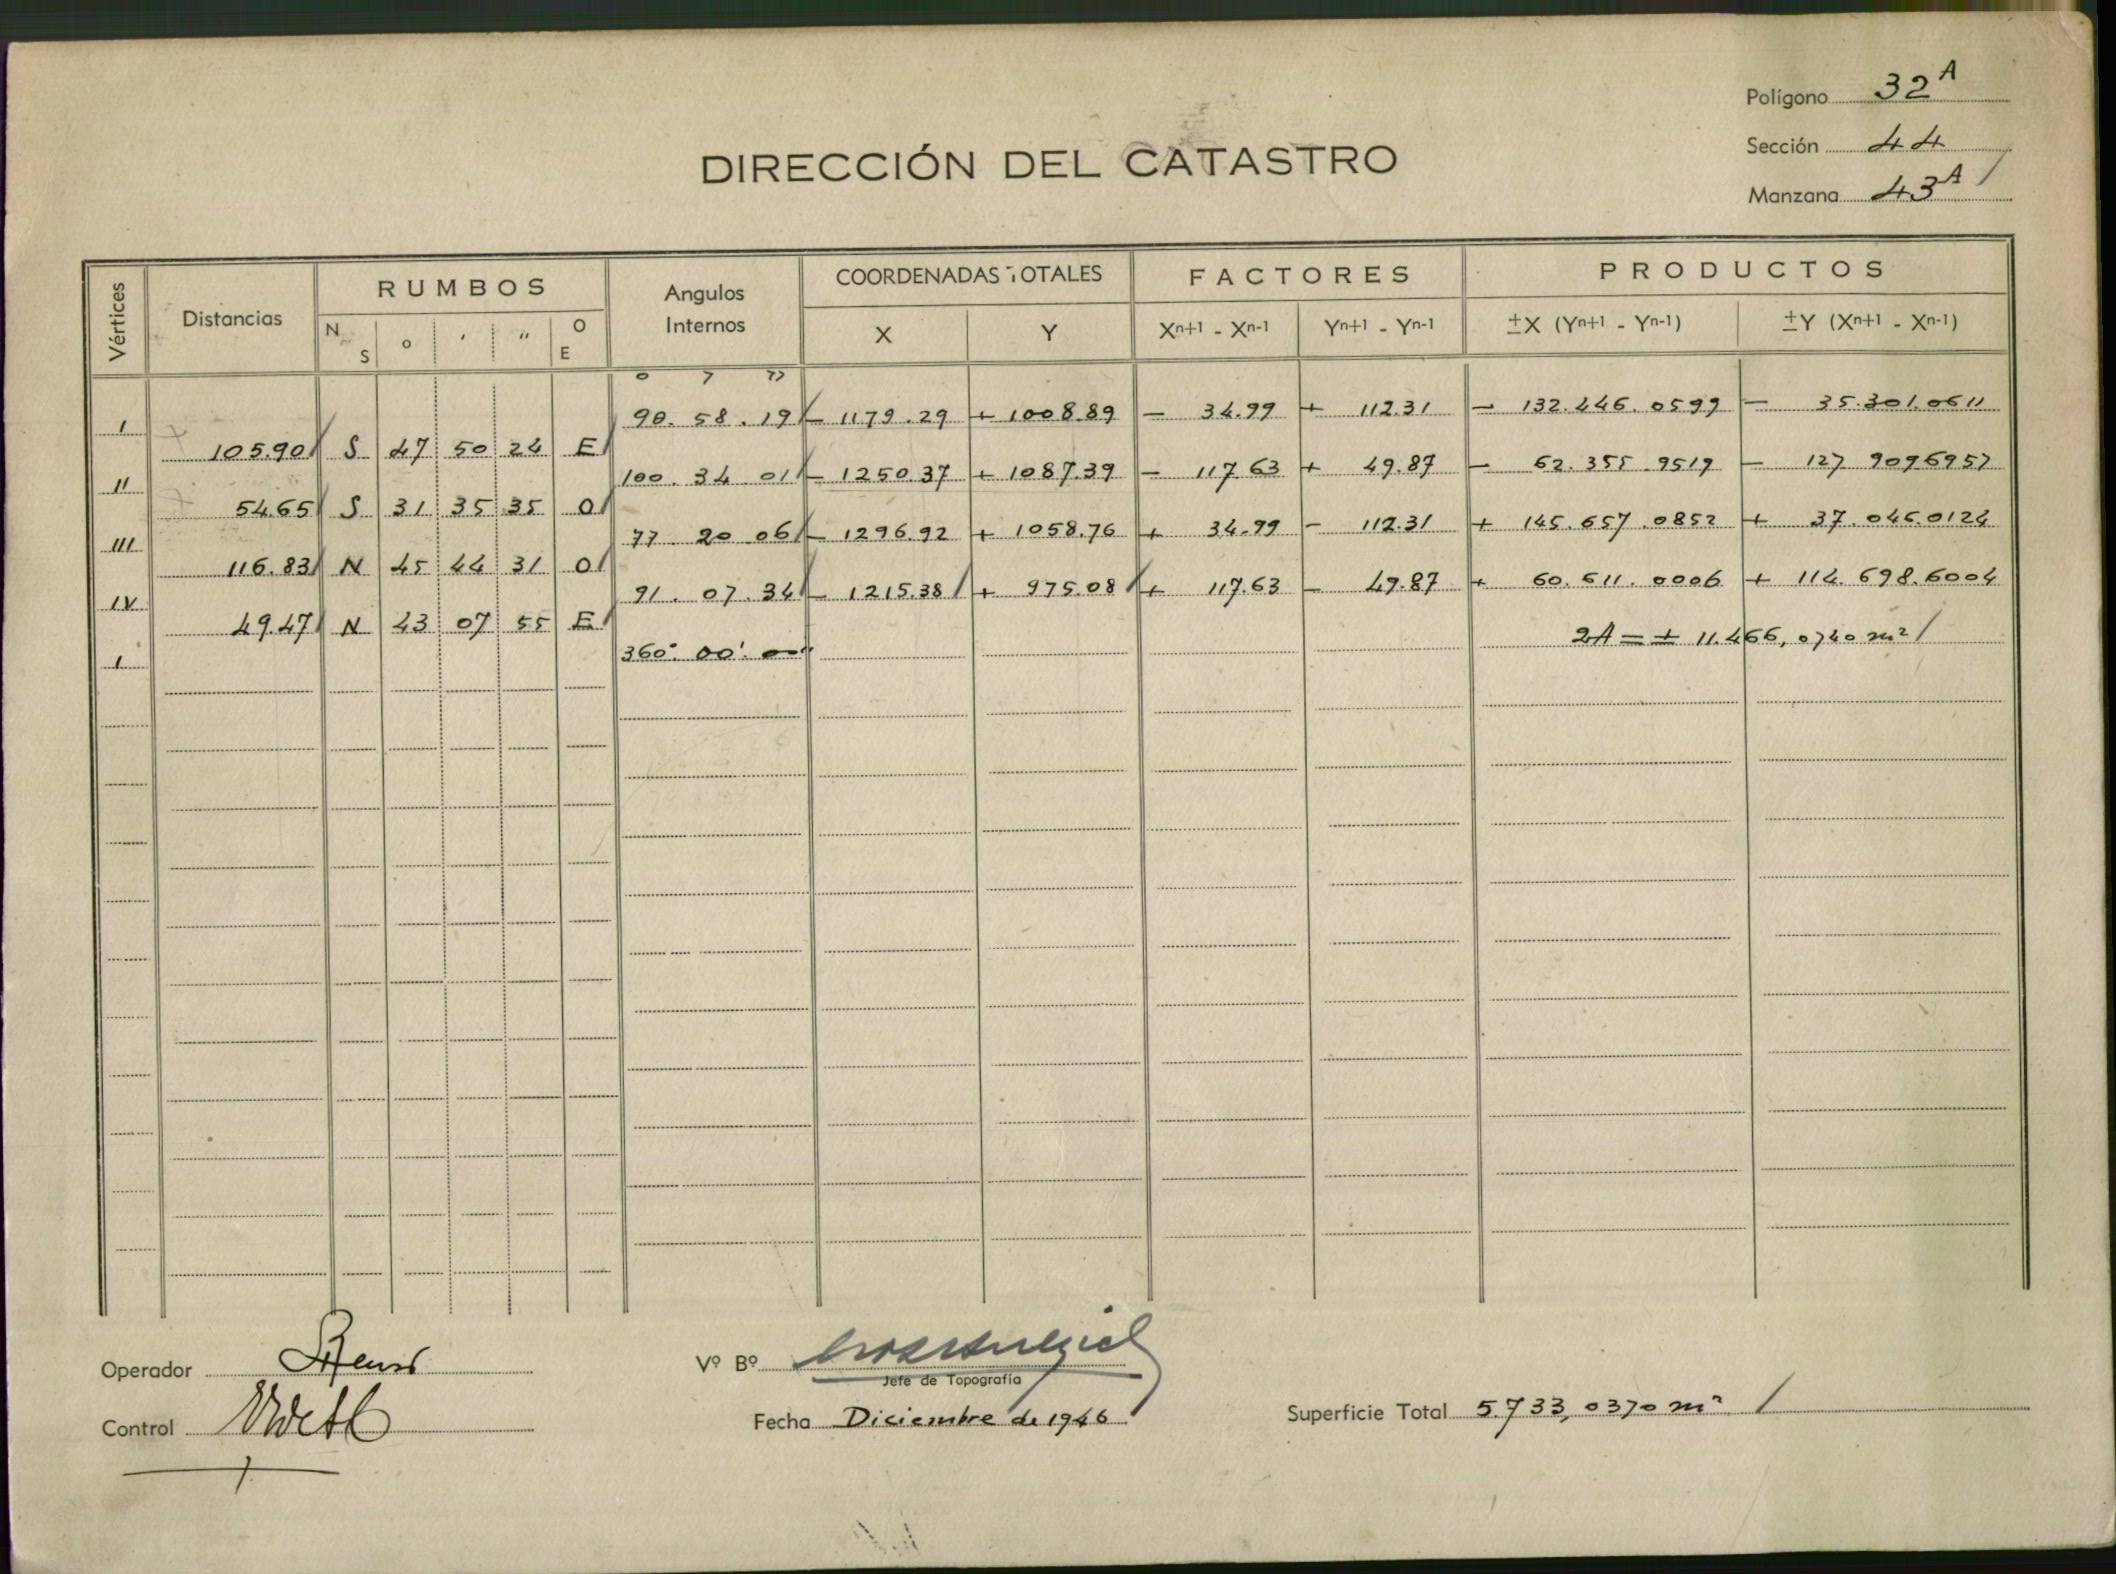 Polígono 32 A
Sección 44
Manzana 43 A /
DIRECCIÓN DEL CATASTRO
Vértices Distancias RUMBOS Angulos Internos COORDENADAS TOTALES FACTORES PRODUCTOS
N S o ' " O E X Y Xn+1 - Xn-1 Yn+1 - Yn-1 ±X (Yn+1 - Yn-1) ±Y (Xn+1 - Xn-1)
o ' "
I 90. 58. 19 - 1179.29 + 1008.89 - 34.99 + 112.31 - 132.446.0599 - 35.301.0611
105.90 S 47 50 24 E
II 100. 34 01 - 1250.37 + 1087.39 - 117.63 + 49.87 - 62.355.9519 - 127 909 6957
54.65 S 31 35 35 O
III 77 20 06 - 1296.92 + 1058.76 + 34.99 - 112.31 + 145.657.0852 + 37.046.0124
116.83 N 45 44 31 O
IV 91. 07. 34 - 1215.38 + 975.08 + 117.63 - 49.87 + 60.611.0006 + 114.698.6004
49.47 N 43 07 55 E
2A = ± 11.466,0740 m² /
I 360° 00' 00"
Operador
Control
Vº Bº
Jefe de Topografía
Fecha Diciembre de 1946
Superficie Total 5.733,0370 m² /